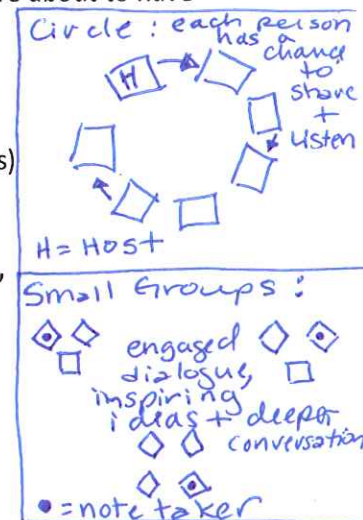 about to have
Circle: each person
has a
chance
to
share
+
listen
H
s)
H = Host
,
Small Groups:
engaged
dialogue,
inspiring
ideas + deeper
conversation
• = note taker